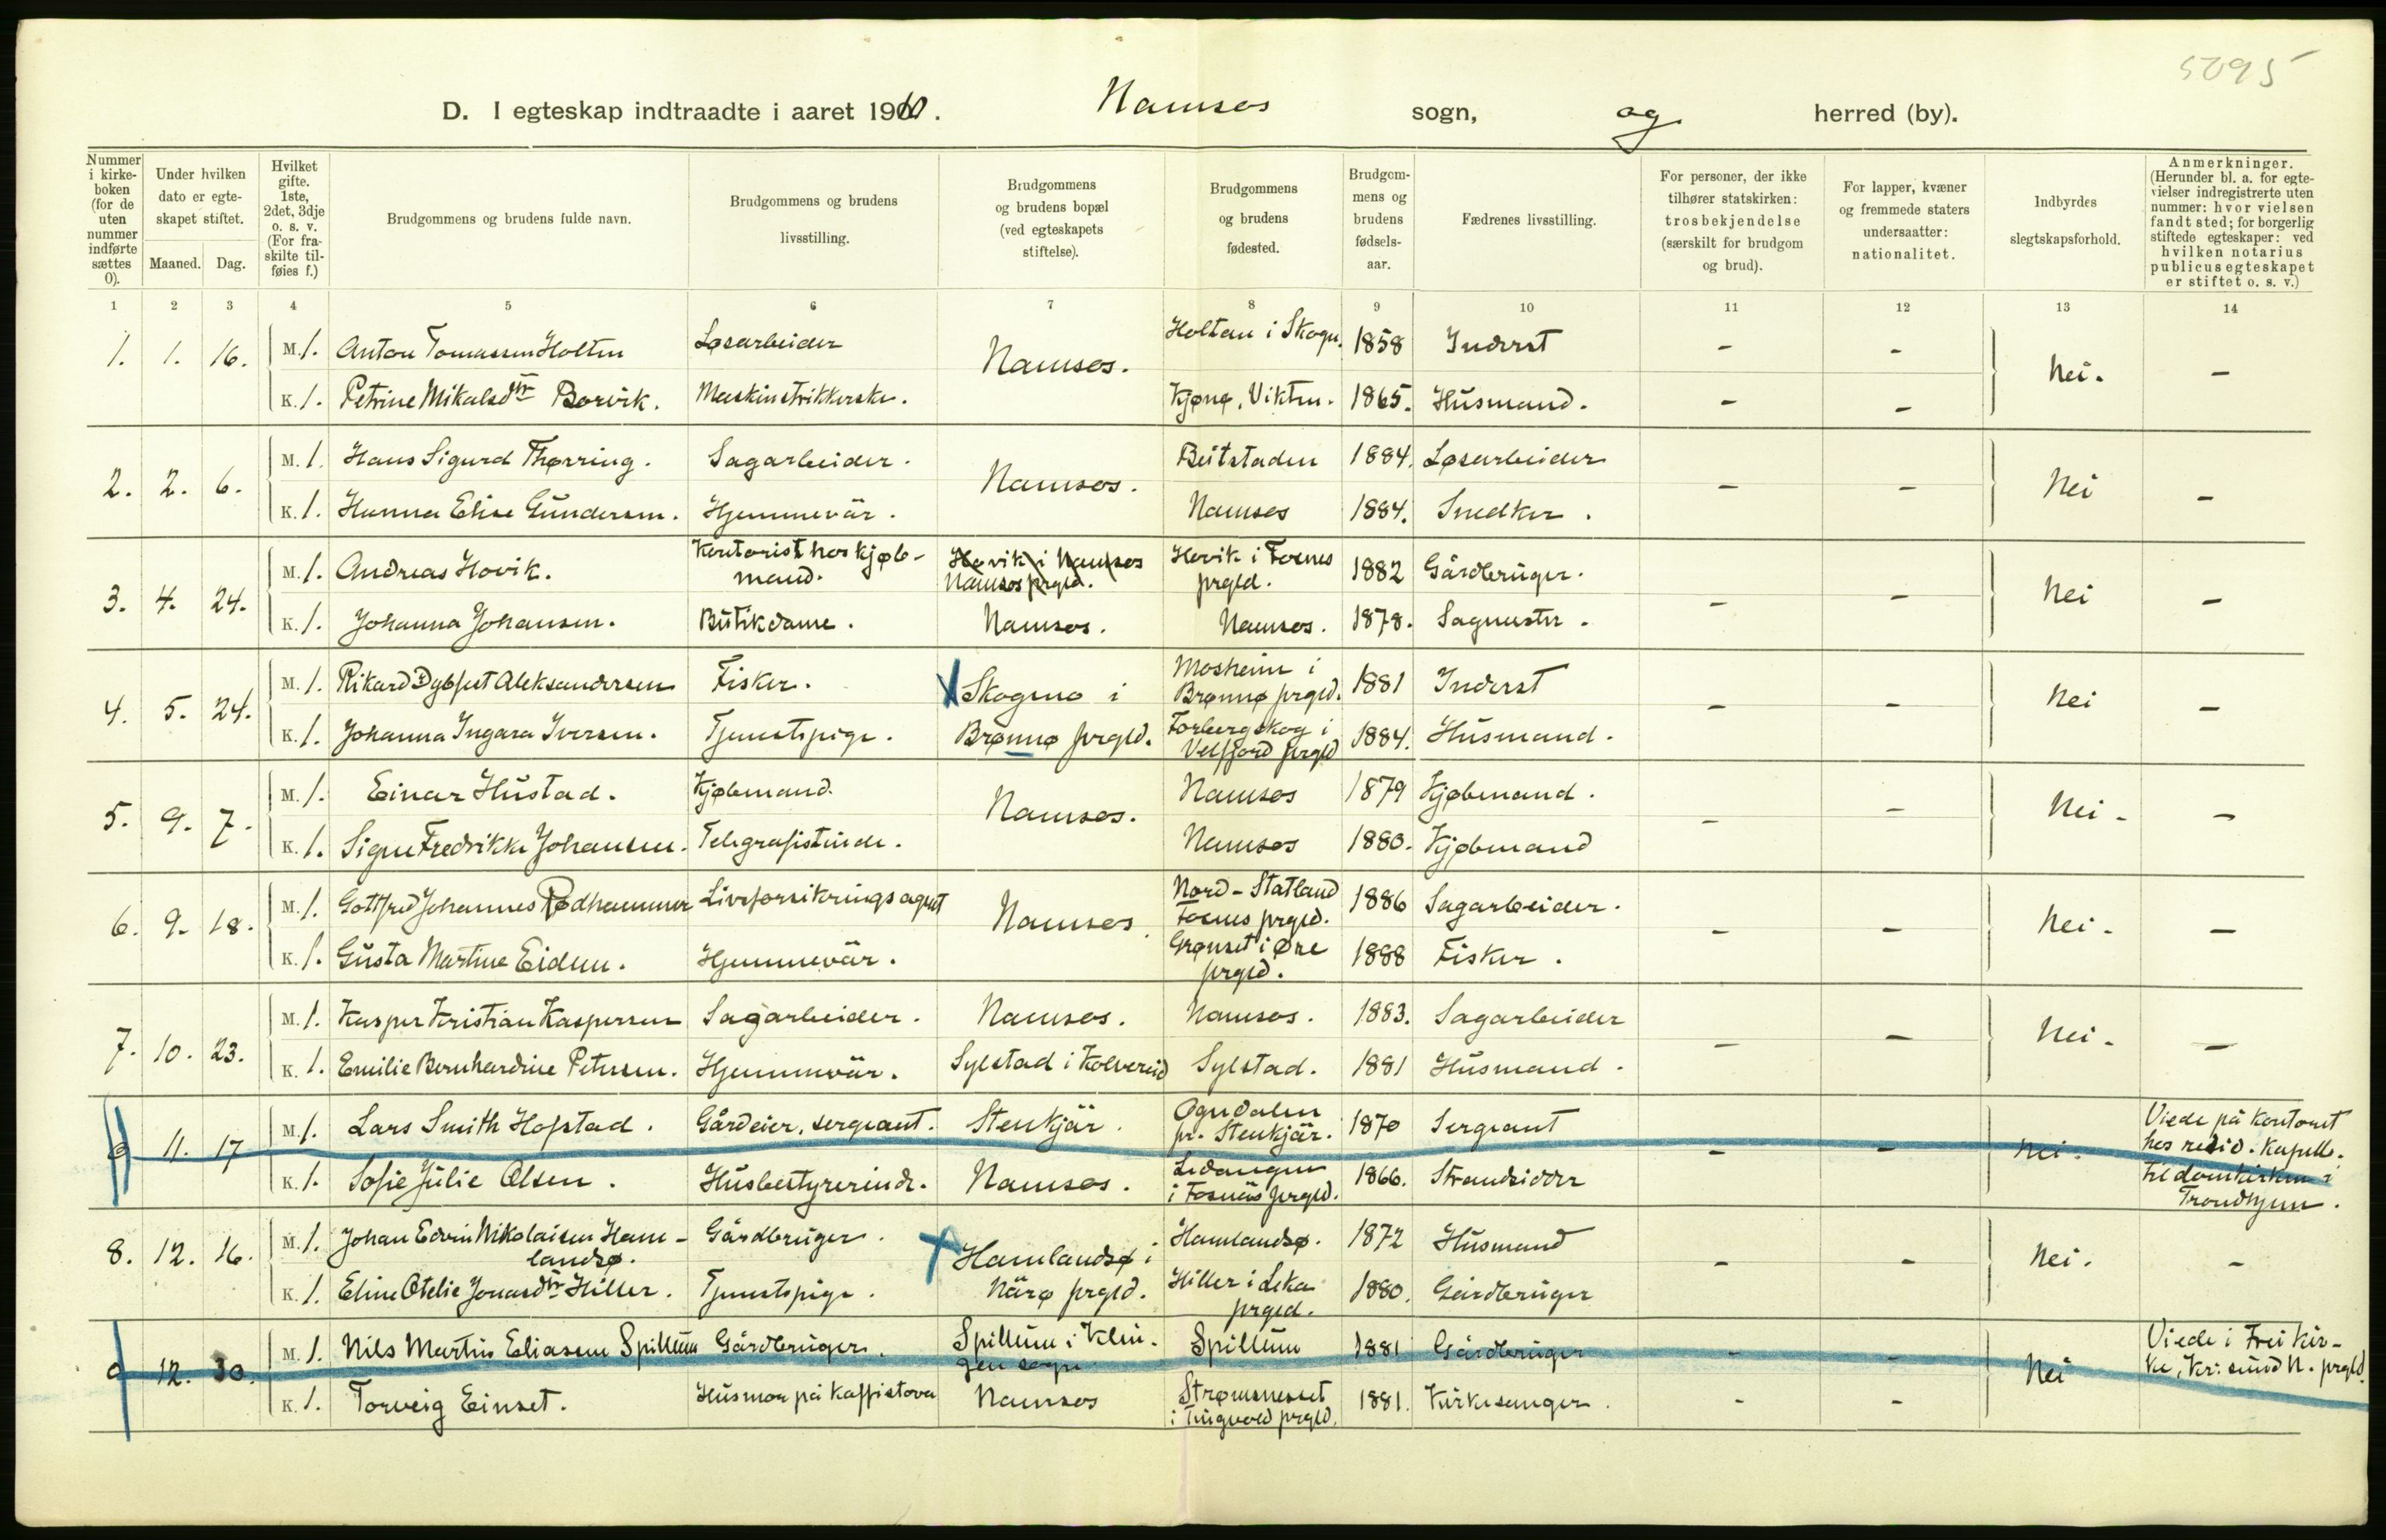 5295
D. I egteskap indtraadte i aaret 1910. Namsos sogn, og herred (by).
Nummer i kirke-boken (for de uten nummer indførte sættes 0).
Under hvilken dato er egte-skapet stiftet.
Maaned. Dag.
Hvilket gifte. 1ste, 2det, 3dje o. s. v. (For fra-skilte til-føies f.)
Brudgommens og brudens fulde navn.
Brudgommens og brudens livsstilling.
Brudgommens og brudens bopæl (ved egteskapets stiftelse).
Brudgommens og brudens fødested.
Brudgom-mens og brudens fødsels-aar.
Fædrenes livsstilling.
For personer, der ikke tilhører statskirken: trosbekjendelse (særskilt for brudgom og brud).
For lapper, kvæner og fremmede staters undersaatter: nationalitet.
Indbyrdes slegtskapsforhold.
Anmerkninger. (Herunder bl. a. for egte-vielser indregistrerte uten nummer: hvor vielsen fandt sted; for borgerlig stiftede egteskaper: ved hvilken notarius publicus egteskapet er stiftet o. s. v.)
1 2 3 4 5 6 7 8 9 10 11 12 13 14
1. 1. 16. M. 1. Anton Tomassen Holten Løsarbeider Namsos. Holtan i Skogn. 1858 Inderst - - Nei. -
K. 1. Petrine Mikalsdtr Borvik. Maskinstrikkerske. Kjønø, Vikten. 1865. Husmand. - -
2. 2. 6. M. 1. Hans Sigurd Thørring. Sagarbeider. Namsos. Beitstaden 1884. Løsarbeider - - Nei -
K. 1. Hanna Elise Gundersen. Hjemmevär. Namsos 1884. Snedker.
3. 4. 24. M. 1. Andreas Hovik. Kontorist hos kjøb-mand. Hovik i Namsos Namsos prgld. Hovik i Fosnes prgld. 1882 Gårdbruger. - - Nei -
K. 1. Johanna Johansen. Butikdame. Namsos. Namsos. 1878. Sagmester.
4. 5. 24. M. 1. Rikard Dybfest Aleksandersen Fisker. X Skogmo i Brønnø prgld. Mosheim i Brønnø prgld. 1881 Inderst - - Nei -
K. 1. Johanna Ingara Iversen. Tjenestepige. Forbergskog i Velfjord prgld 1884. Husmand.
5. 9. 7. M. 1. Einar Hustad. Kjøbmand. Namsos. Namsos 1879 Kjøbmand. - - Nei - -
K. 1. Signe Fredrikke Johansen. Telegrafistinde. Namsos 1880. Kjøbmand
6. 9. 18. M. 1. Gottfred Johannes Rødhammer Livsforsikringsagent Namsos. Nord-Statland Fosnes prgld. 1886 Sagarbeider. - - Nei. -
K. 1. Gusta Martine Eiden. Hjemmevär. Grønset i Øre prgld. 1888 Fisker.
7. 10. 23. M. 1. Kasper Kristian Kaspersen Sagarbeider. Namsos. Namsos. 1883. Sagarbeider - - Nei. -
K. 1. Emilie Bernhardine Petersen. Hjemmevär. Sylstad i Kolvereid Sylstad. 1881 Husmand.
0 11. 17 M. 1. Lars Smith Hofstad. Gårdeier, sergeant. Stenkjär. Ogndalen pr. Stenkjär. 1870 Sergeant - - Nei. Viede på kontoret hos resid. kapell. til domkirken i Trondhjem.
K. 1. Sofie Julie Olsen. Husbestyrerinde. Namsos. i Fosnäs prgld. 1866. Strandsidder
8. 12. 16. M. 1. Johan Edvin Nikolaisen Ham-landsø. Gårdbruger. X Hamlandsø i Närø prgld. Hamlandsø. 1872 Husmand - - Nei. -
K. 1. Eline Otelie Jonasdtr Hiller. Tjenestepige. Hiller i Leka prgld. 1880. Gårdbruger
0 12. 30. M. 1. Nils Martin Eliassen Spillum Gårdbruger. Spillum i Klin-gen sogn Spillum 1881 Gårdbruger - - Nei Viede i Frei kir-ke, Kr:sund N. prgld.
K. 1. Torveig Einset. Husmor på kaffistova Namsos Strømsnesset i Tingvold prgld. 1881. Kirkesanger. - -